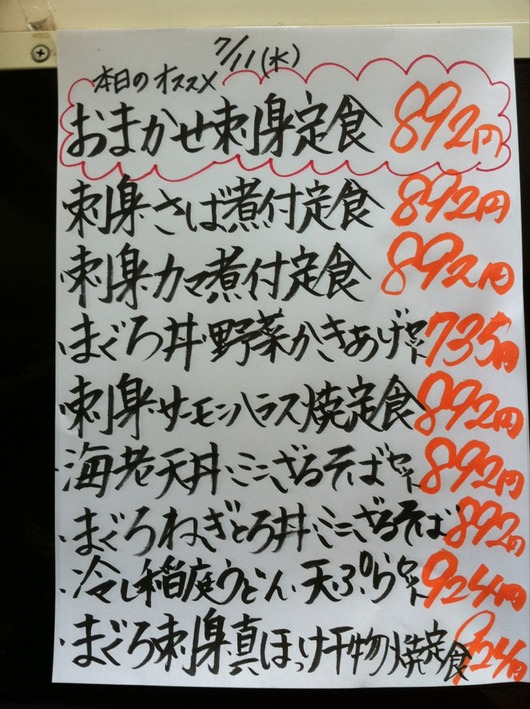 7/11(水)
本日のオススメ
おまかせ刺身定食 892円
刺身・さば煮付定食 892円
刺身・カマ煮付定食 892円
・まぐろ丼・野菜かきあげセット 735円
・刺身・サーモンハラス焼定食 892円
・海老天丼・ミニざるそばセット 892円
・まぐろねぎとろ丼・ミニざるそば 892円
・冷し稲庭うどん・天ぷらセット 924円
・まぐろ刺身・真ほっけ干物焼定食 924円